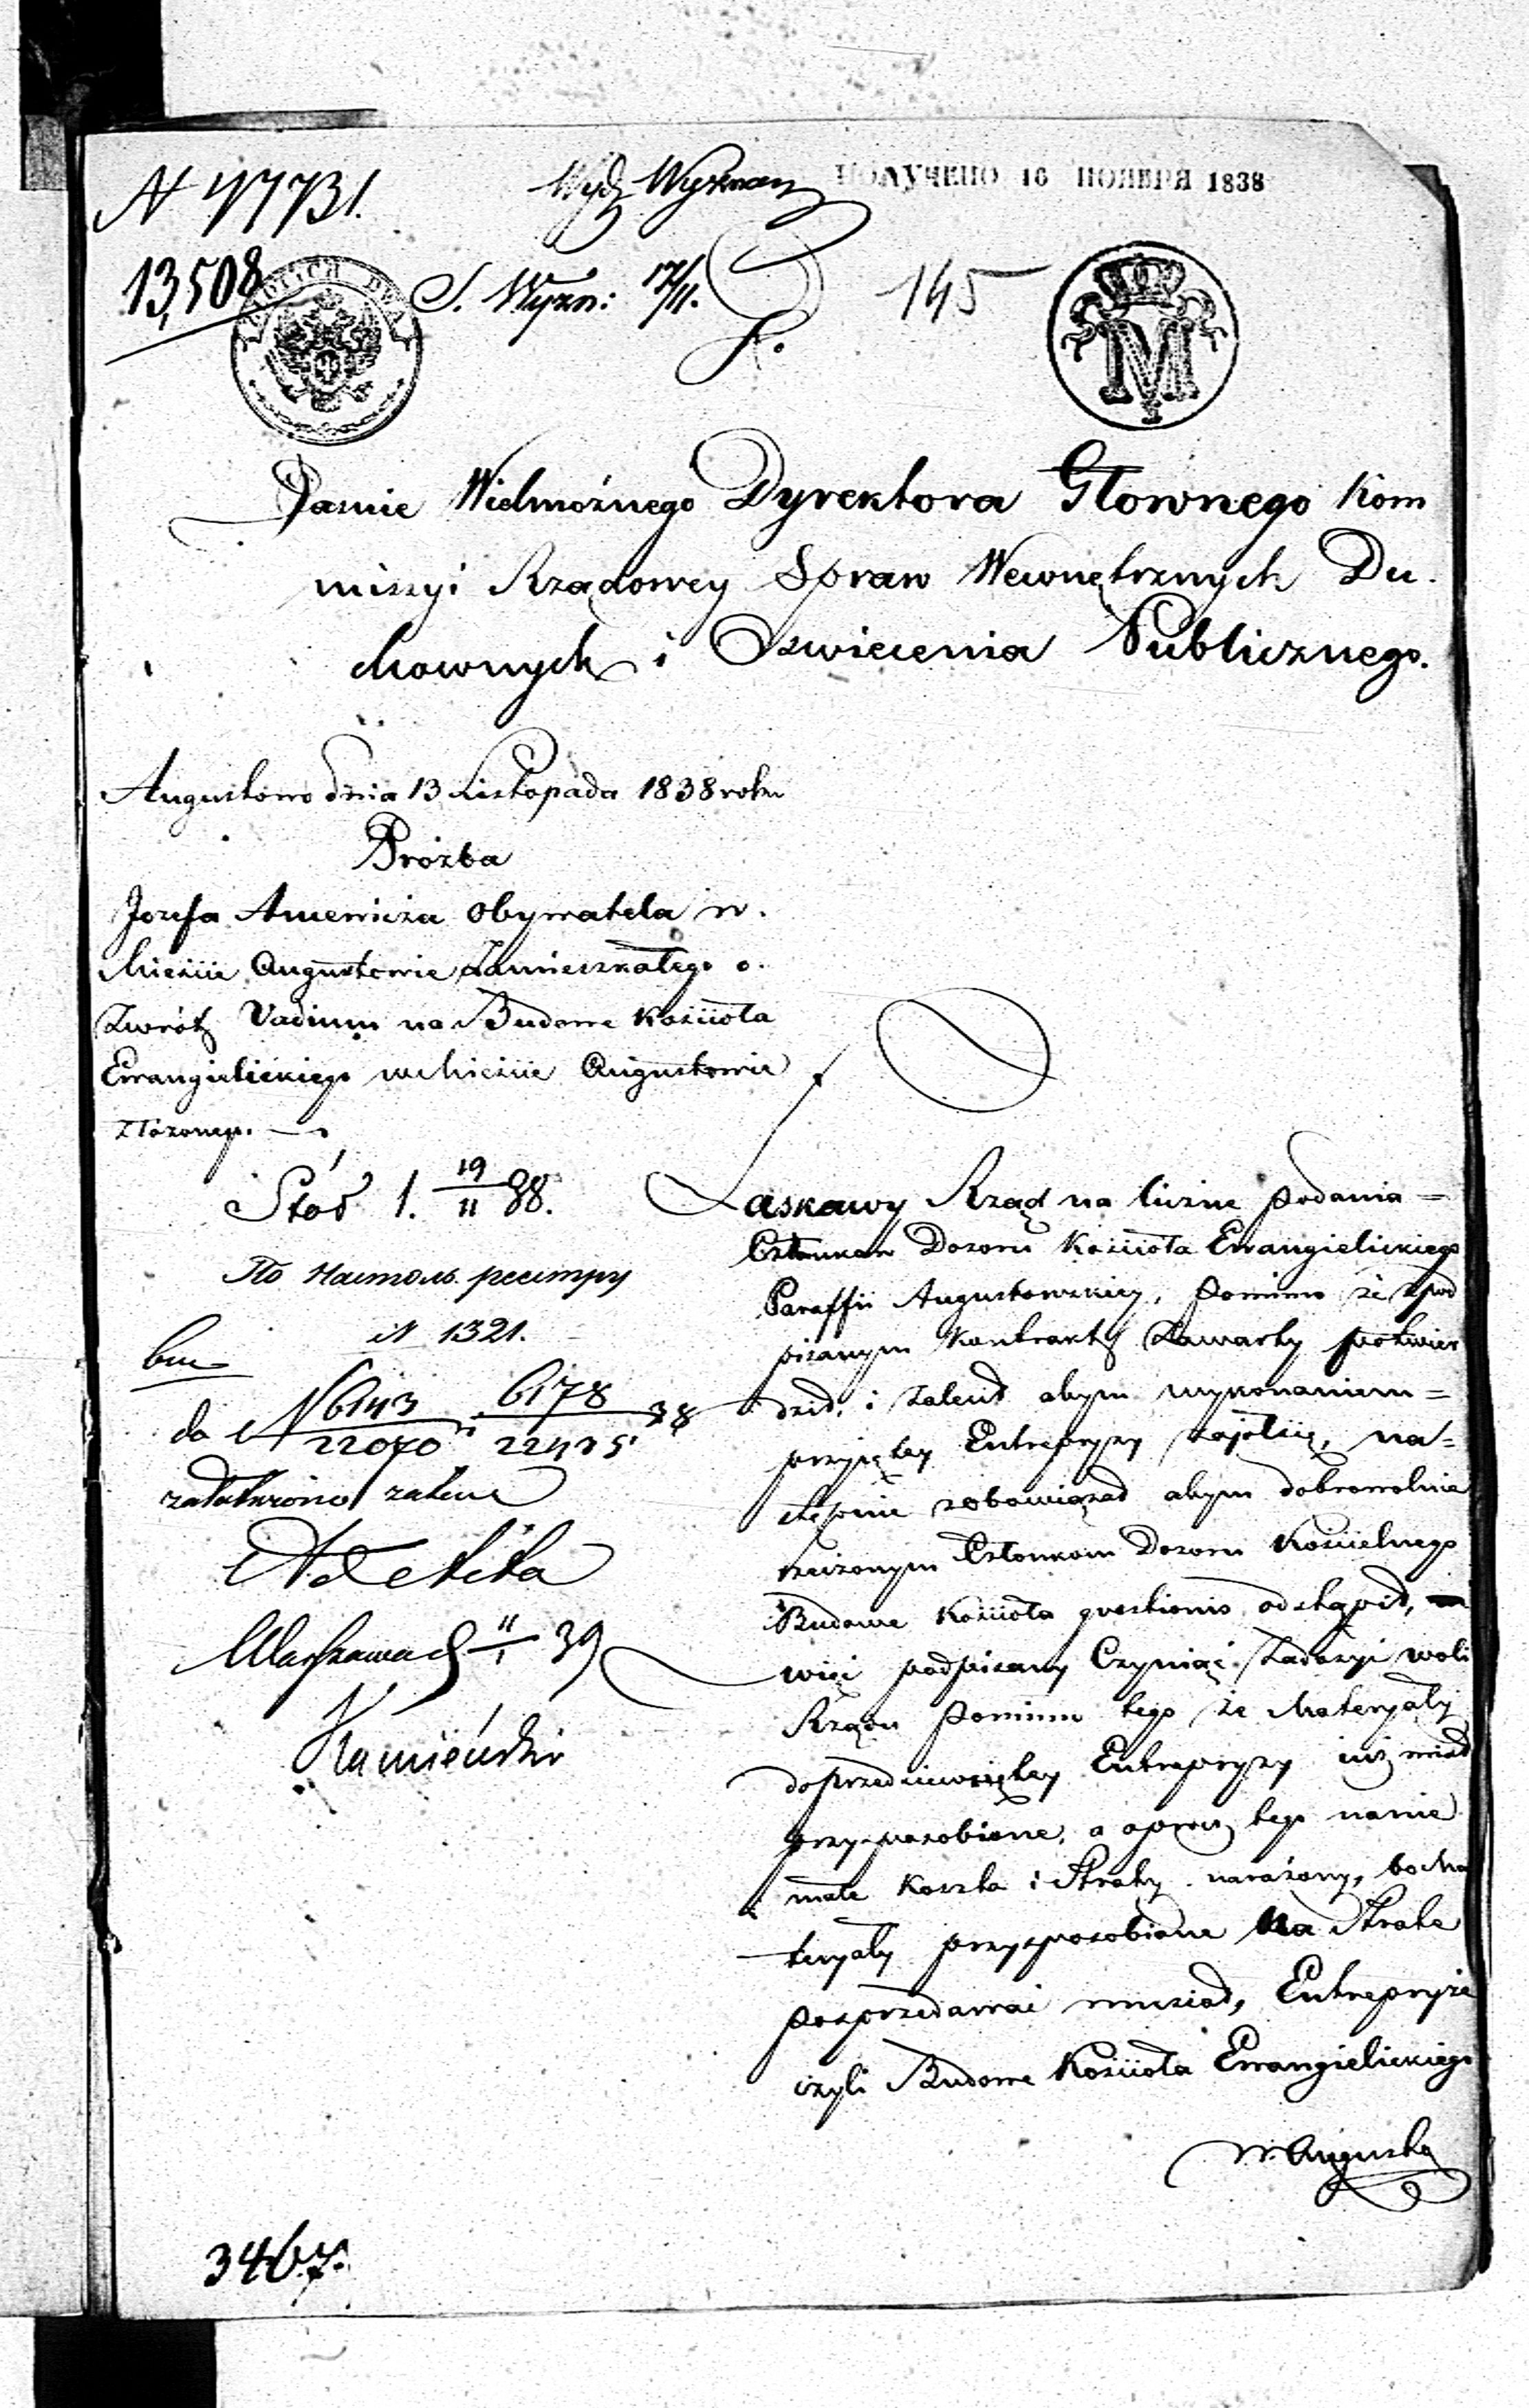 N 47731.
Wydz Wyznań
ПОЛУЧЕНО 16 НОЯБРЯ 1838
13,508
S. Wyzn: 17/11.
145
ZŁOTYCH DWA
M
Jasnie Wielmożnego Dyrektora Głownego Kom
missyi Rządowey Spraw Wewnętrznych Du-
chownych i Oswiecenia Publicznego.
Augustowo dnia 13 Listopada 1838 roku
Prozba
Jozefa obywatela w.
Mieście Augustowie Zamieszkałego o.
Zwrót Vadium na Budowe Kościoła
Ewangielickiego w Mieście Augustowie
Złożonego. —
Stós 1. 19/11 38.
По Настоль. реестру
N 1321.
do N 6143/22070 i 6178/22435 38
załatwiono
Warszawa d 11/1 39
Kamieński
Łaskawy Rząd na liczne podania =
Członkow Dozoru Kościoła Ewangielickiego
Paraffii Augustowskiey, pomimo że z pod
pisanym Kontrakt Zawarty potwier
dził, i zalecił abym wykonaniem =
przyjętey Entrepryzy zajołsię, na=
stepnie zobowiązał abym dobrowolnie
rzeczonym Członkom Dozoru Kościelnego
Budowe Kościoła questionis odstąpił,
więc podpisany Czyniąc Zadosyć woli
Rządu pomimo tego że Materyały
doprzedsiewziętey Entrepryzy iuż miał
przysposobione, a oprocz tego nanie
małe koszta i Straty narażony, bo Ma
teryały przysposobione Na Strate
posprzedawać musiał, Entrepryze
czyli Budowe Kościoła Ewangielickiego
w Augusto
3467.